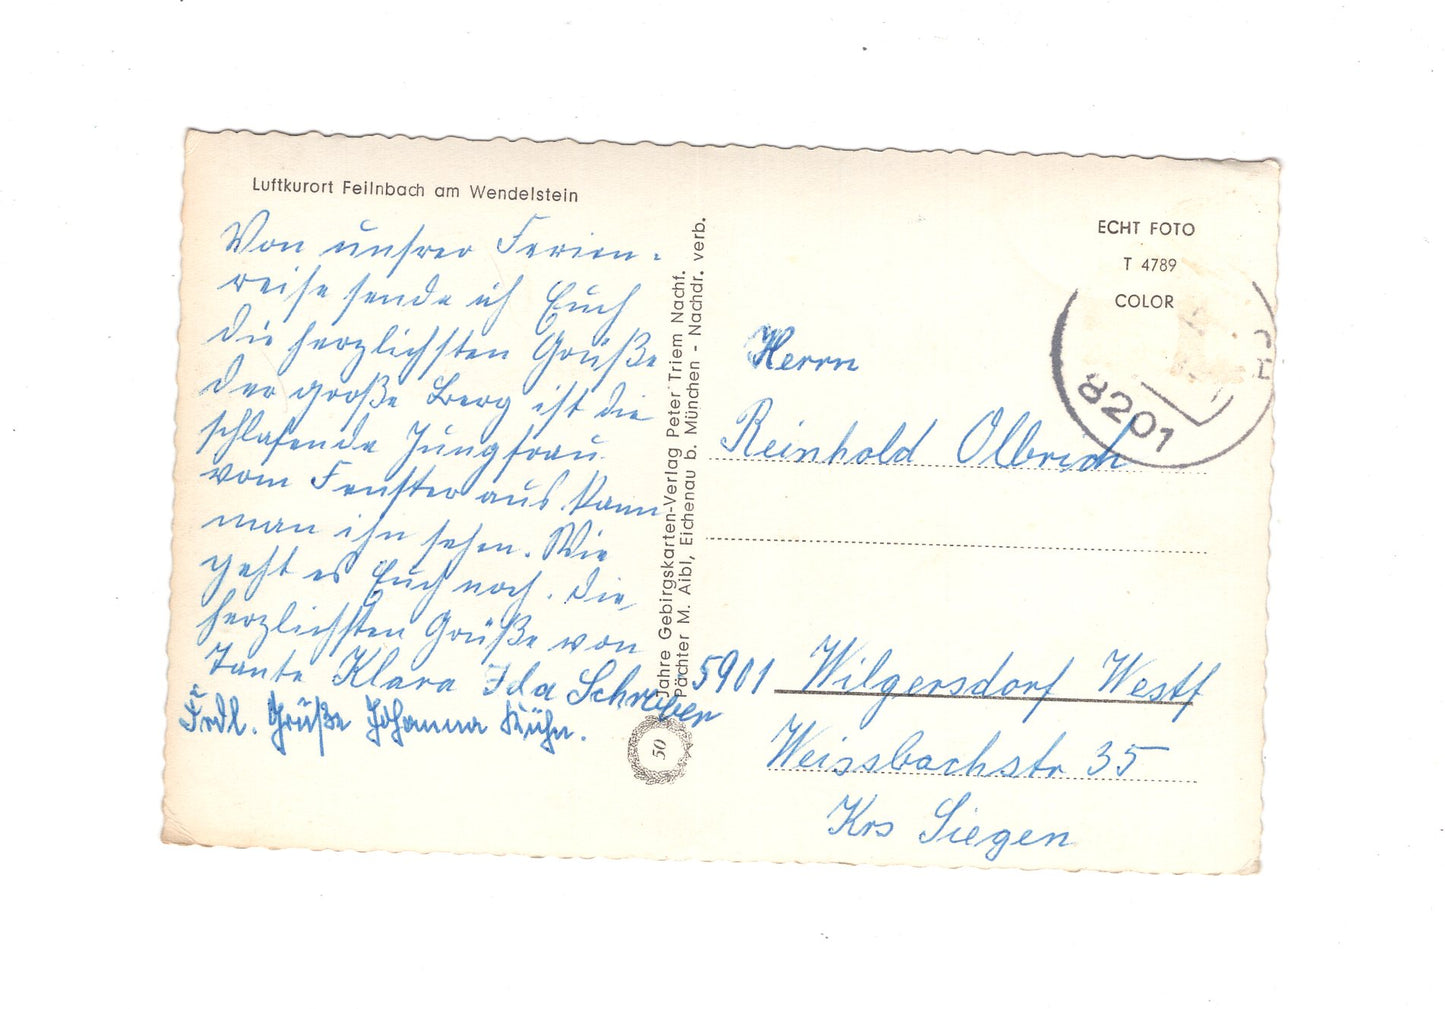 Luftkurort Feilnbach am Wendelstein
Von unsrer Ferien-
reise sende ich Euch
die herzlichsten Grüße
der große Berg ist die
schlafende Jungfrau.
vom Fenster aus kann
man ihn sehen. Wie
geht es Euch noch. Die
herzlichsten Grüße von
Tante Klara Ida Schreber
Frdl. Grüße Johanna Kühn.
50
Jahre Gebirgskarten-Verlag Peter Triem Nachf.
Pächter M. Aibl, Eichenau b. München - Nachdr. verb.
ECHT FOTO
T 4789
COLOR
8201
Herrn
Reinhold Olbrich
5901 Wilgersdorf Westf
Weissbachstr 35
Krs Siegen